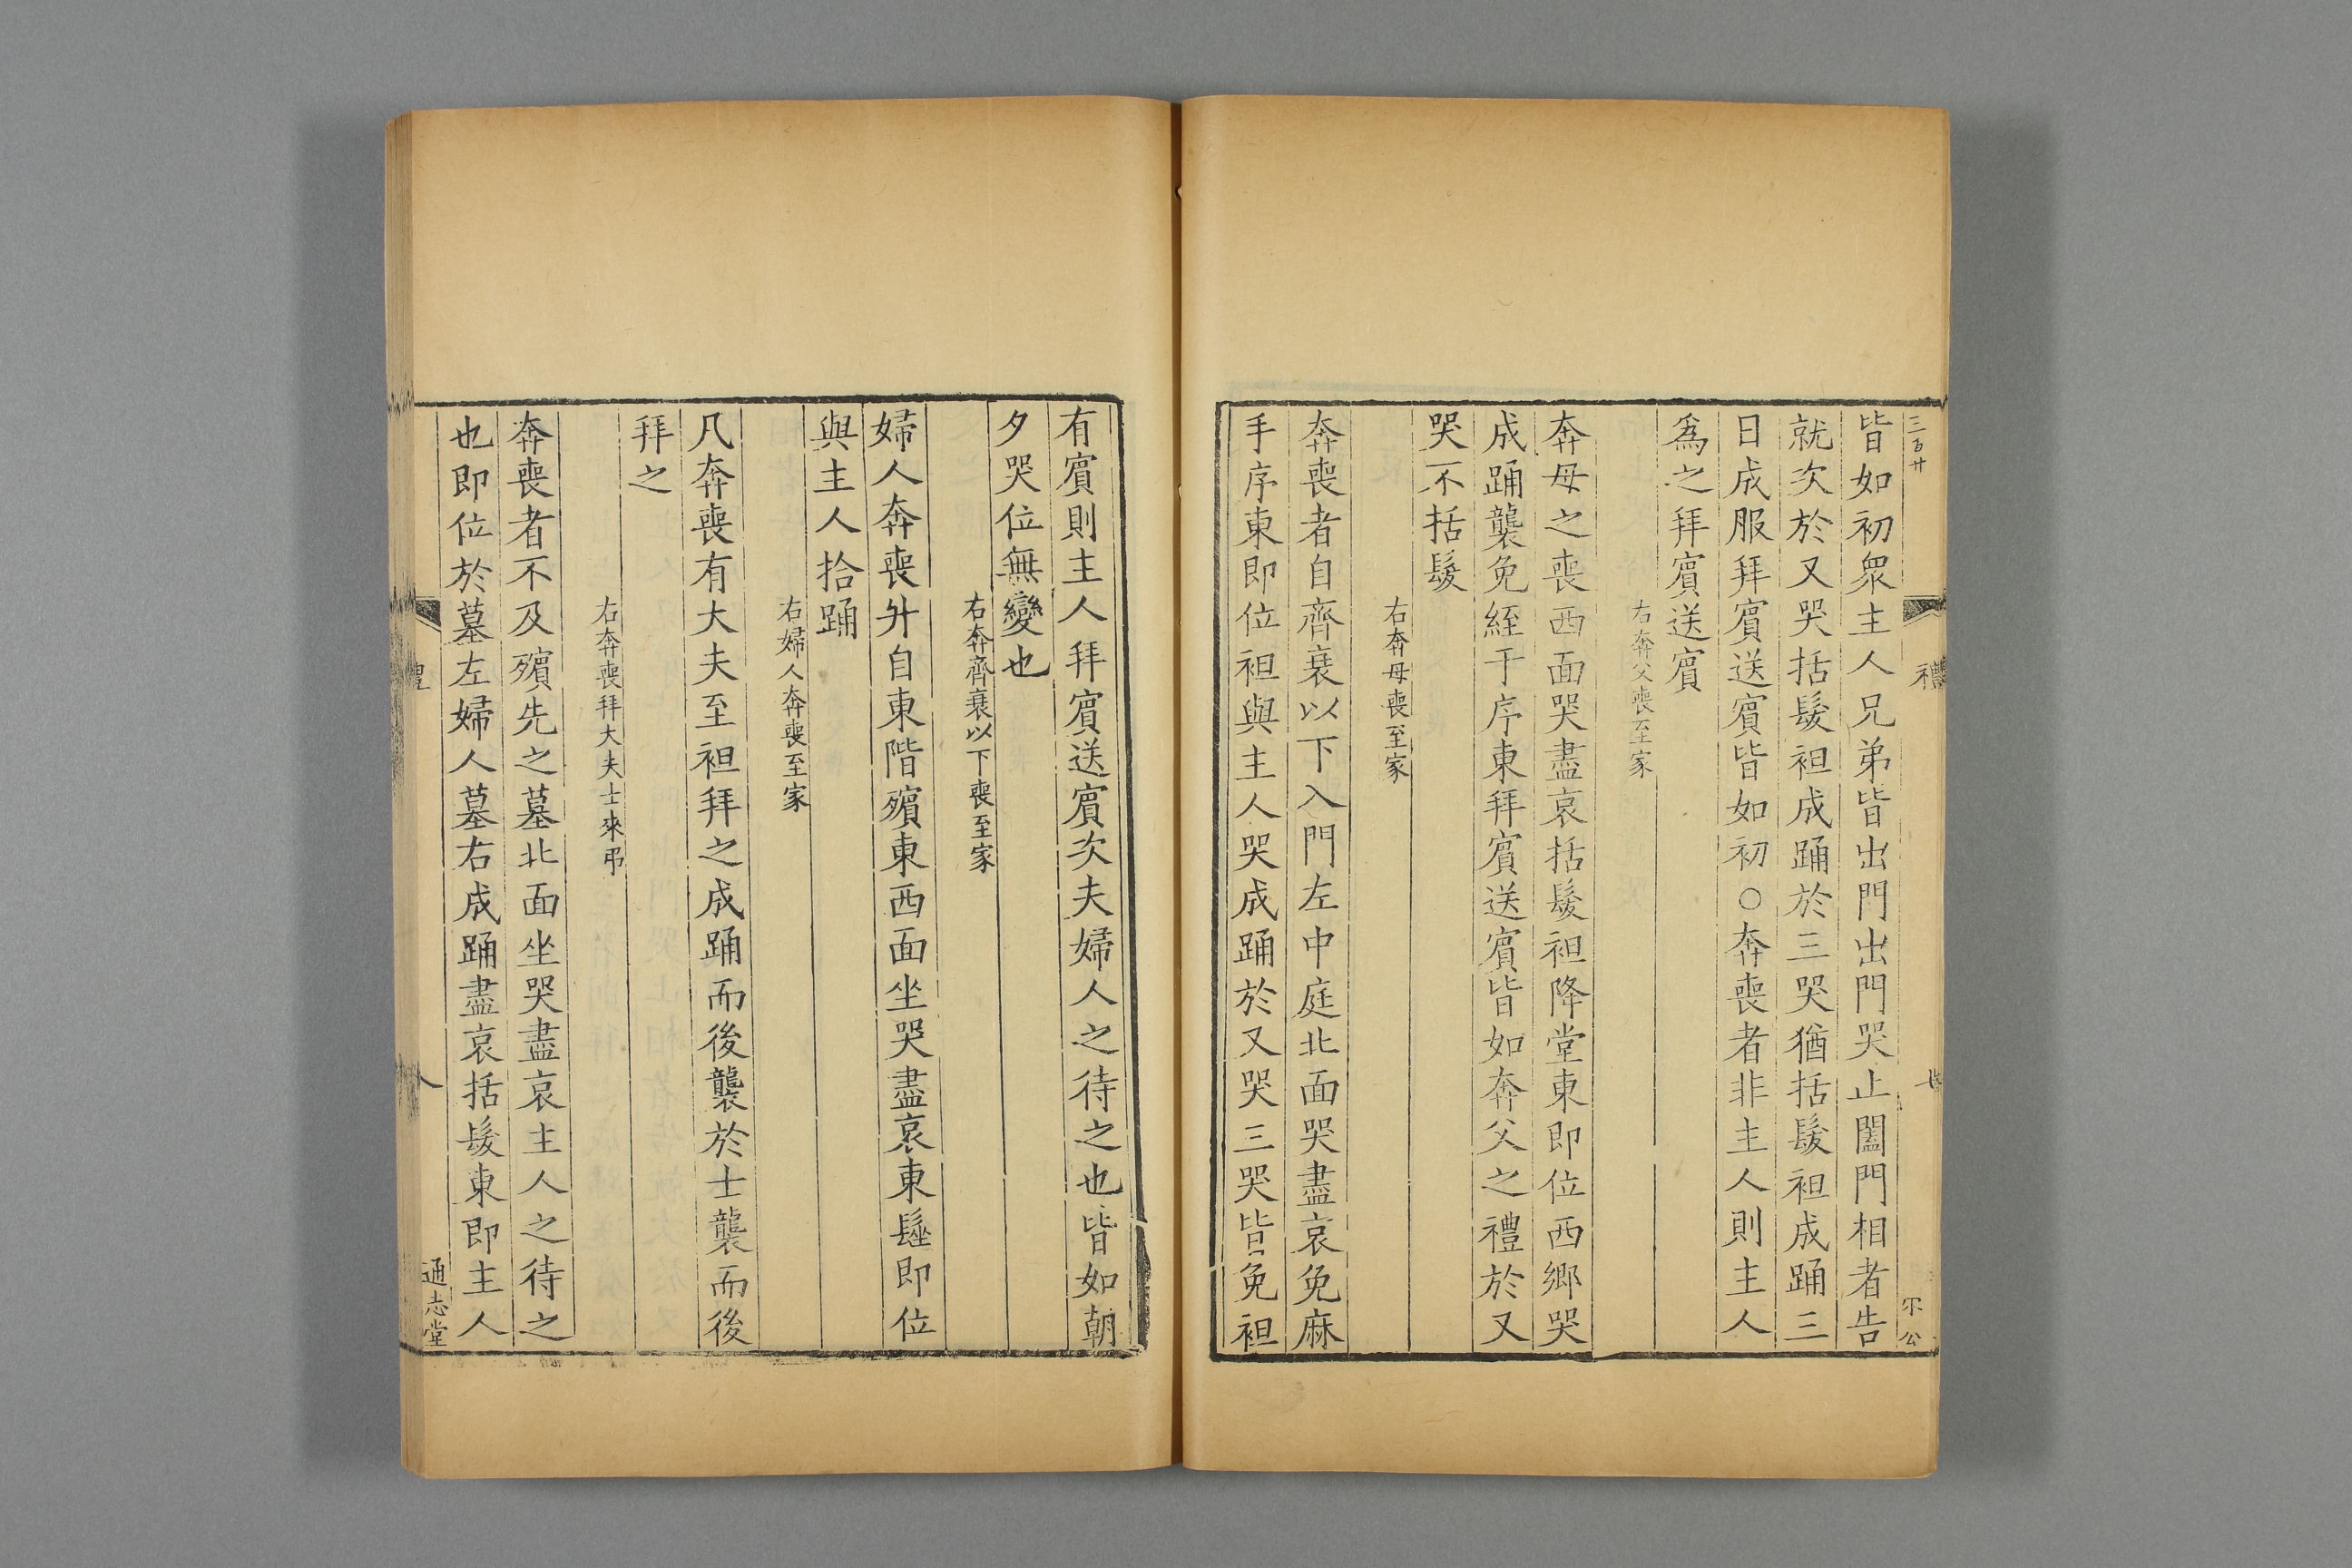 三百廿
禮
皆如初衆主人兄弟皆出門出門哭止闔門相者告
就次於又哭括髮袒成踊於三哭猶括髮袒成踊三
日成服拜賔送賔皆如初○奔喪者非主人則主人
爲之拜賔送賔
右奔父喪至家
奔母之喪西面哭盡哀括髮袒降堂東即位西郷哭
成踊襲免絰于序東拜賔送賔皆如奔父之禮於又
哭不括髮
右奔母喪至家
奔喪者自齊衰以下入門左中庭北面哭盡哀免麻
于序東即位袒與主人哭成踊於又哭三哭皆免袒
有賔則主人拜賔送賔丈夫婦人之待之也皆如朝
夕哭位無變也
右奔齊衰以下喪至家
婦人奔喪升自東階殯東西面坐哭盡哀東髽即位
與主人拾踊
右婦人奔喪至家
凡奔喪有大夫至袒拜之成踊而後襲於士襲而後
拜之
右奔喪拜大夫士來弔
奔喪者不及殯先之墓北面坐哭盡哀主人之待之
也即位於墓左婦人墓右成踊盡哀括髮東即主人
八
通志堂